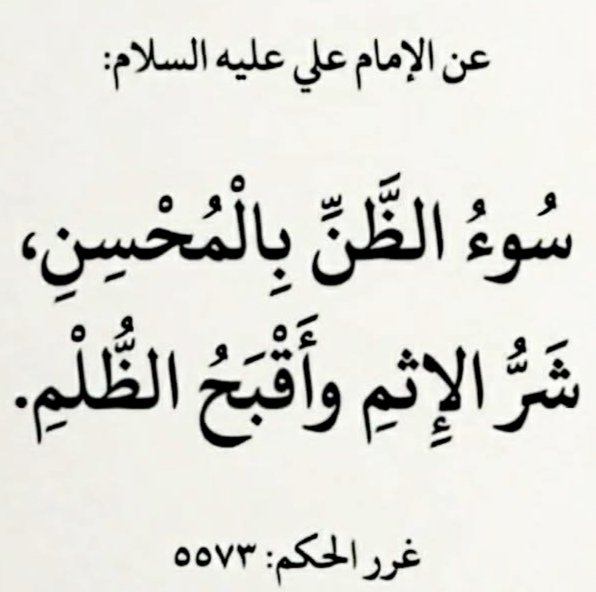 عن الإمام علي عليه السلام:
سُوءُ الظَّنِّ بِالْمُحْسِنِ،
شَرُّ الإِثمِ وأَقْبَحُ الظُّلْمِ.
غرر الحكم: ٥٥٧٣